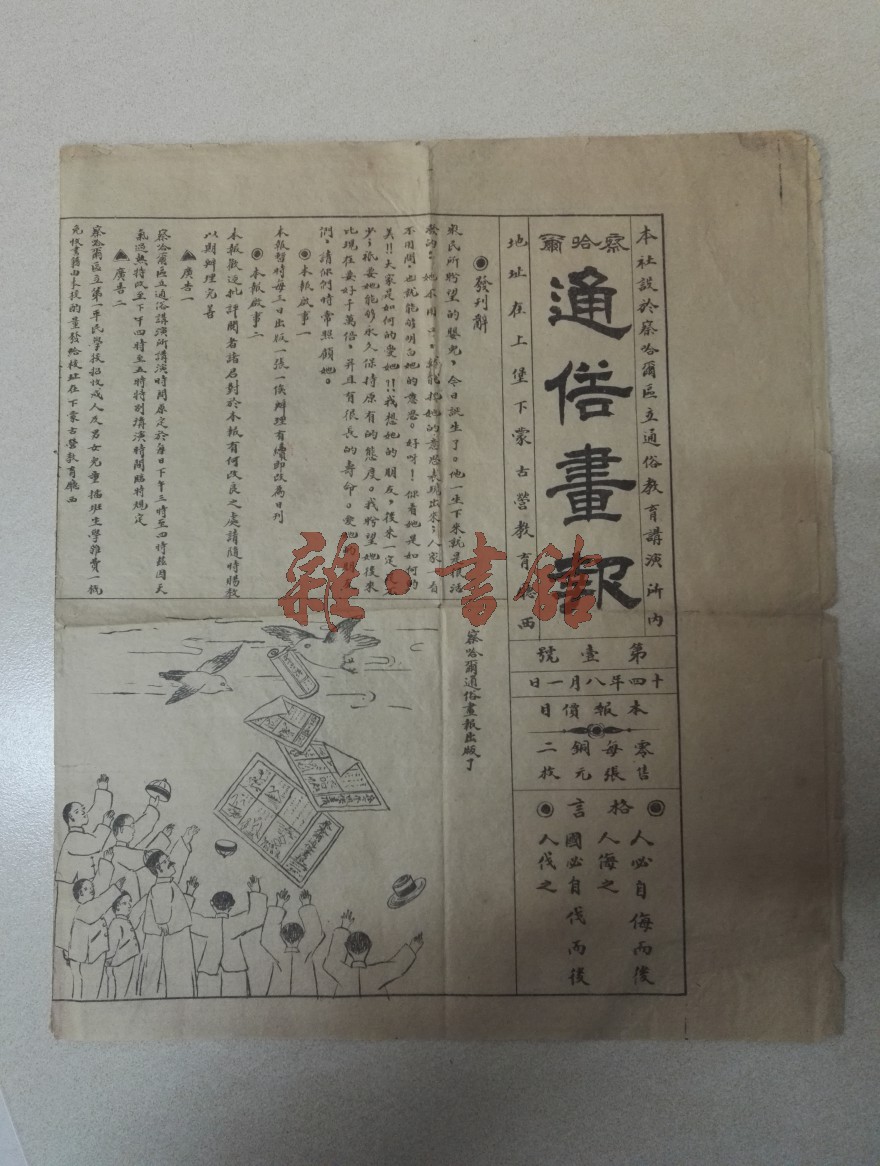 本社設於察哈爾區立通俗教育講演所內
察哈爾
通俗畫報
地址在上堡下蒙古營教育廳西
第壹號
十四年八月一日
本報價目
零售每張銅元二枚
格言
人必自侮而後
人侮之
國必自伐而後
人伐之
發刊辭
民所盼望的嬰兒，今日誕生了。他一生下來就是很活
潑的！她不用口，就能把她的意思表現出來；人家一看
不用問，也就能夠明白她的意思。好呀！你看她是如何的
美！！大家是如何的愛她！！我想她的朋友，後來一定
少；祇要她能夠永久保持原有的態度。我盼望她後來
比現在要好千萬倍，并且有很長的壽命。愛她的朋友
們，請你們時常照顧她。
本報啟事一
本報暫時每三日出版一張一俟辦理有續即改為日刊
本報啟事二
本報歡迎批評閱者諸君對於本報有何改良之處請隨時賜教
以期辦理完善
廣告一
察哈爾區立通俗講演所講演時間原定於每日下午三時至四時茲因天
氣過熱特改至下午四時至五時特別講演時間臨時規定
廣告二
察哈爾區立第一平民學校招收成人及男女兒童插班生學雜費一概
元收書籍由本校酌量發給校址在下蒙古營教育廳西
察哈爾通俗畫報出版了
雜·書館